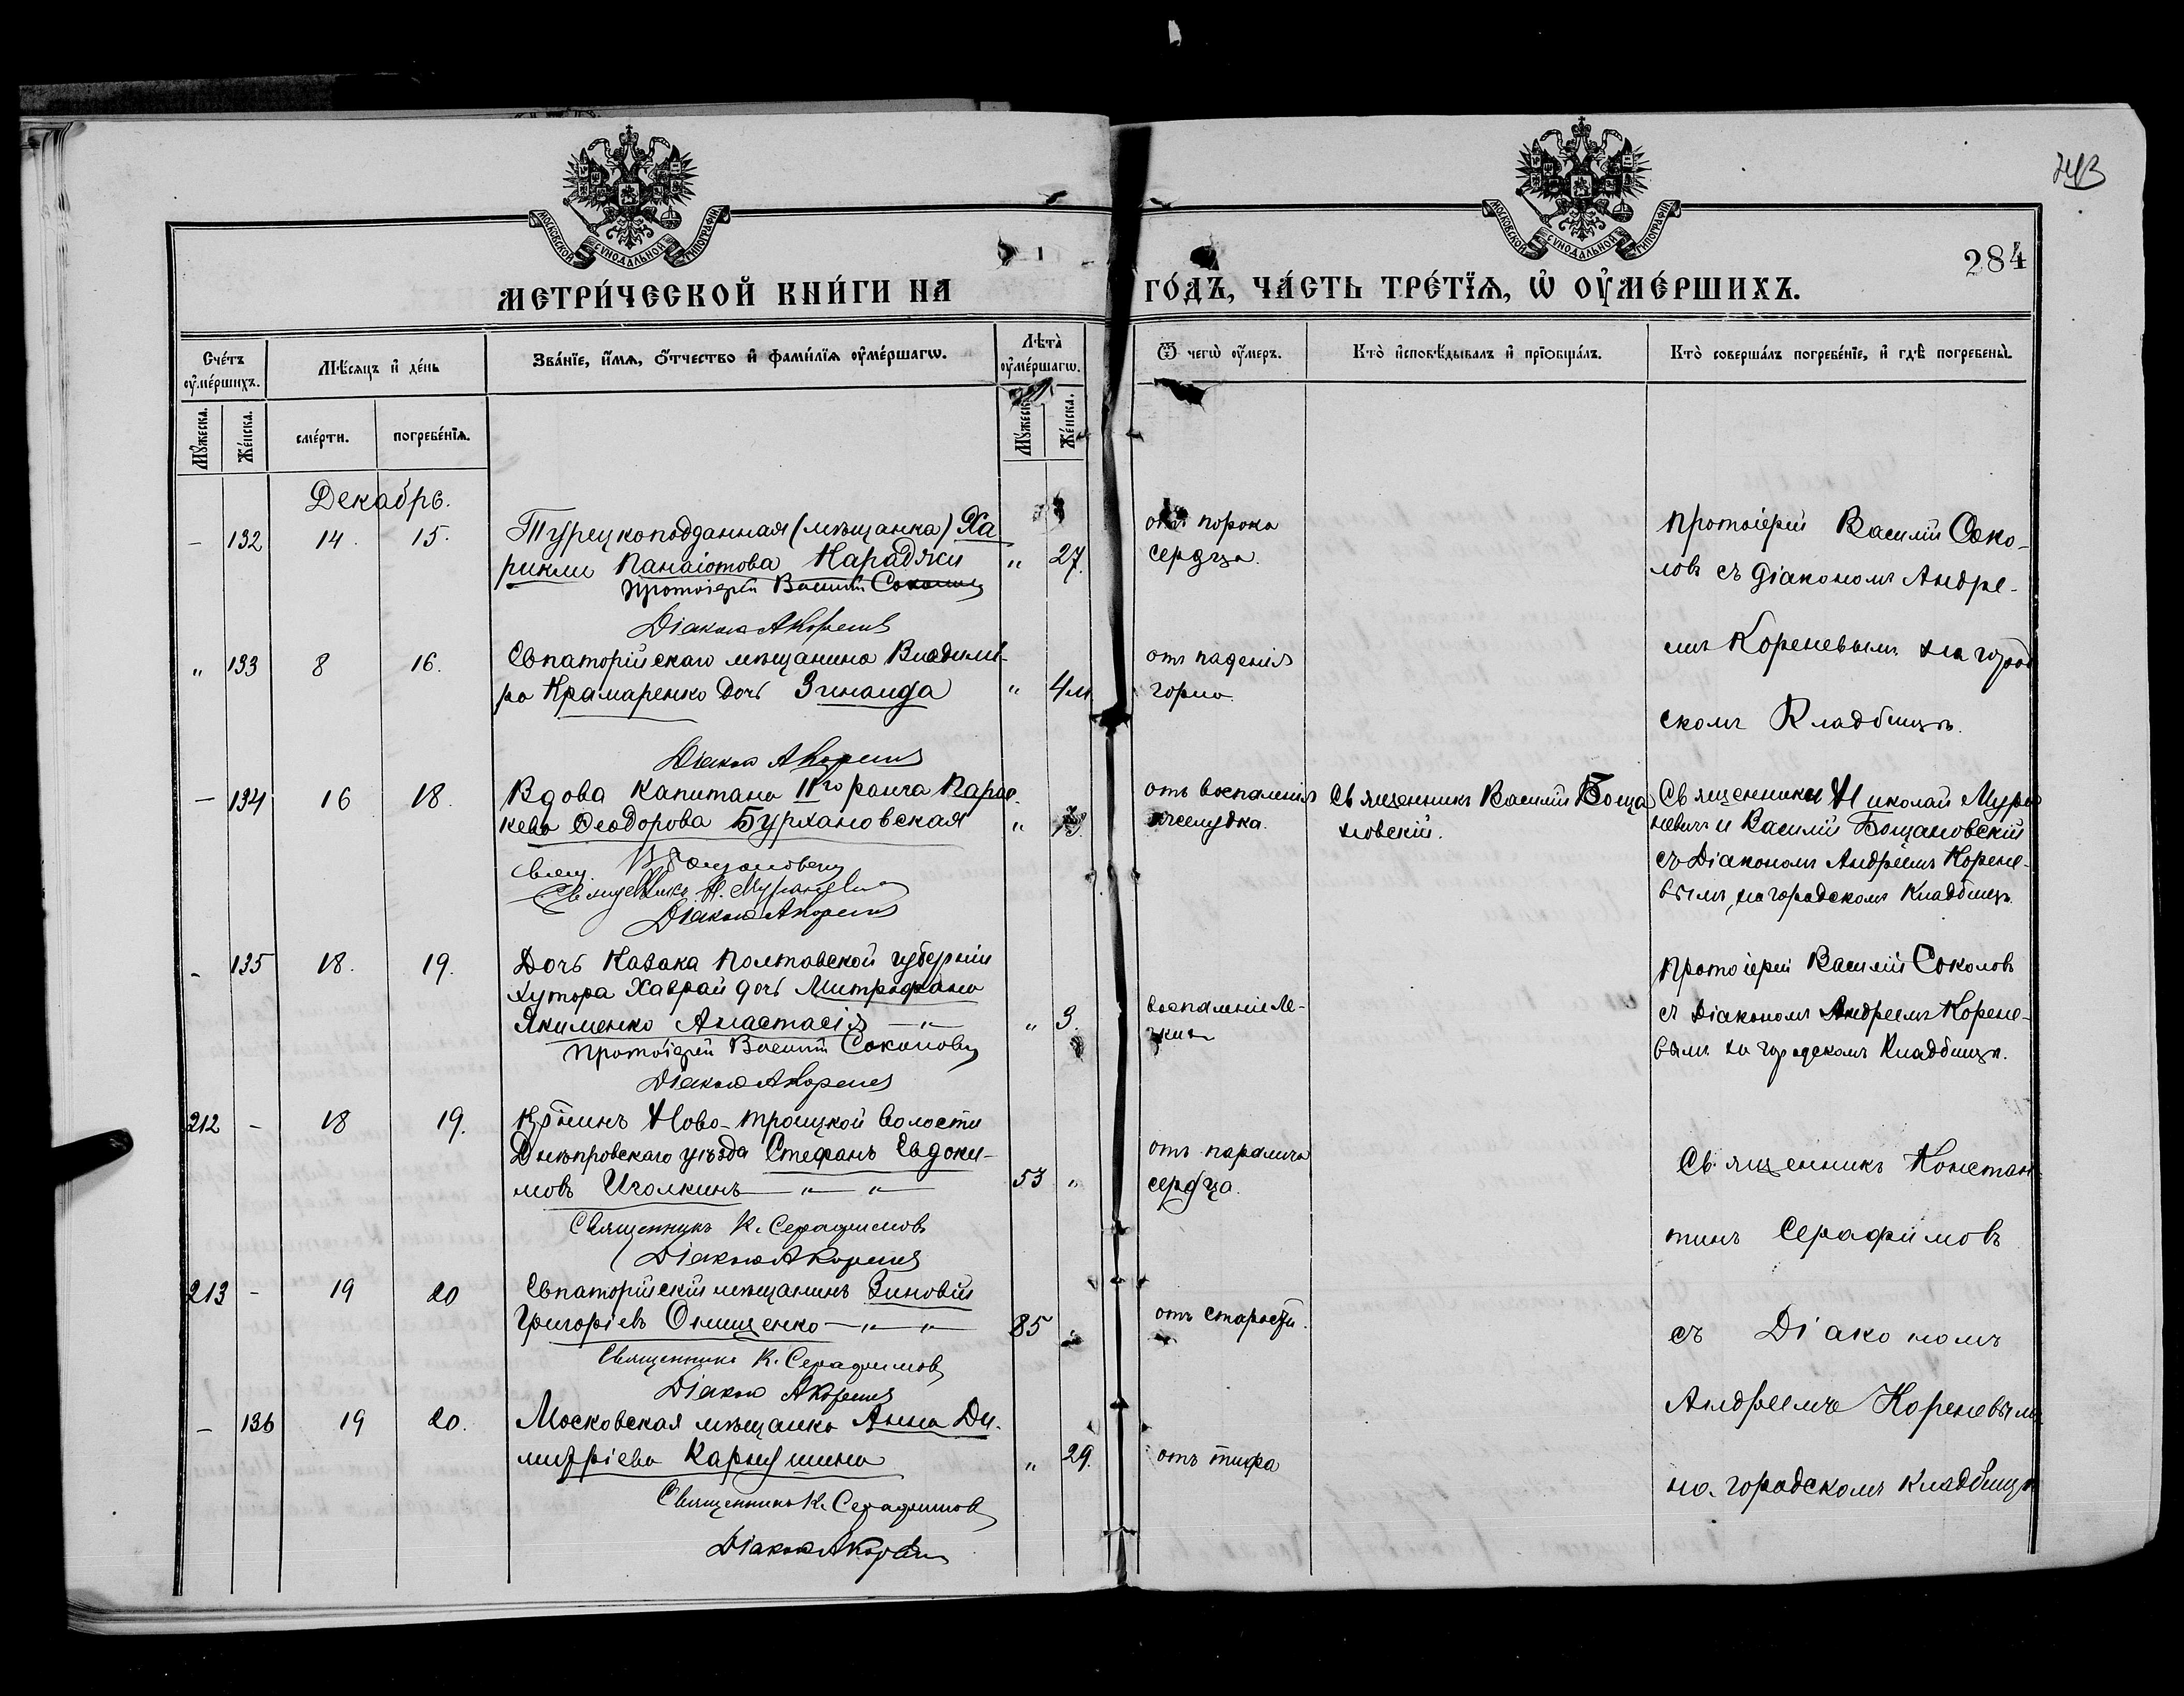 743
МОСКОВСКОЙ СУНОДАЛЬНОЙ ТИПОГРАФІИ
МОСКОВСКОЙ СУНОДАЛЬНОЙ ТИПОГРАФІИ
284
МЕТРИ́ЧЕСКОЙ КНИ́ГИ НА ГО́ДЪ, ЧА́СТЬ ТРЕ́ТЇѦ, Ѡ҆ ОУ҆МЕ́РШИХЪ.
Сче́тъ оу҆ме́ршихъ.
Мѣ́сяцъ и҆ де́нь
Зва́нїе, и҆́мя, ѻ҆́тчество и҆ фами́лїя оу҆ме́ршагѡ.
Лѣ́та оу҆ме́ршагѡ.
Ѿ чегѡ̀ оу҆́меръ.
Кто̀ и҆сповѣ́дывалъ и҆ прїѡбща́лъ.
Кто̀ соверша́лъ погребе́нїе, и҆ гдѣ̀ погребены̀.
Мꙋ́жеска.
Же́нска.
сме́рти.
погребе́нїя.
Мꙋ́жеск
Же́нска.
Декабрь.
— 132 14. 15. Турецкоподданная (мѣщанка) Ха
рикли Панаіотова Караджи " 27.
Протоіерей Василій Соколовъ
Діаконъ А Кореневъ
отъ порока
сердца.
Протоіерей Василій Соко-
ловъ съ діакономъ Андре-
емъ Кореневымъ на город
скомъ Кладбищѣ.
" 133 8 16. Евпаторійскаго мѣщанина Владимі-
ра Крамаренко дочь Зинаида " 4м
Діаконъ А Кореневъ
отъ паденія
горла.
— 134 16 18. Вдова Капитана IIго ранга Парас-
кева Ѳеодорова Бурхановская "
Свящ. В Бощановскій
Священникъ Н. Мураневичъ
Діаконъ А Кореневъ
отъ воспаленія
желудка.
Священникъ Василій Боща
новскій.
Священники Николай Мура
невичъ и Василій Бощановскій
съ Діакономъ Андреемъ Корене-
вымъ, на городскомъ Кладбищѣ.
- 135 18. 19. Дочь Казака Полтавской губерніи
хутора Хаврай дочь Митрофана
Якименко Анастасія — " — " 3.
Протоіерей Василій Соколовъ
Діаконъ А Кореневъ
воспаленіе Ле-
гкихъ
Протоіерей Василій Соколовъ
съ Діакономъ Андреемъ Корене-
вымъ на городскомъ Кладбищѣ.
212 - 18 19. Кр̃нинъ Ново-Троицкой волости
Днѣпровскаго уѣзда Стефанъ Евдоки-
мовъ Иголкинъ — " — " — 53 "
Священникъ К. Серафимовъ
Діаконъ А Кореневъ
отъ паралича
сердца.
Священникъ Констан-
тинъ Серафимовъ
съ Діакономъ
Андреемъ Кореневымъ
на городскомъ кладбищѣ
213 - 19 20 Евпаторійскій мѣщанинъ Зиновій
Григоріевъ Онищенко — " — " — 85
Священникъ К. Серафимовъ
Діаконъ А Кореневъ
отъ старости.
— 136 19 20. Московская мѣщанка Анна Ди-
митріева Карпушина " 29.
Священникъ К. Серафимовъ
Діаконъ А Кореневъ
отъ тифа